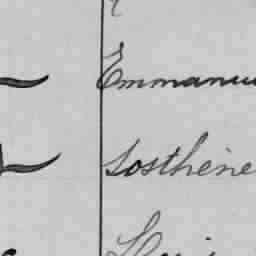 Emmanu
Sosthène